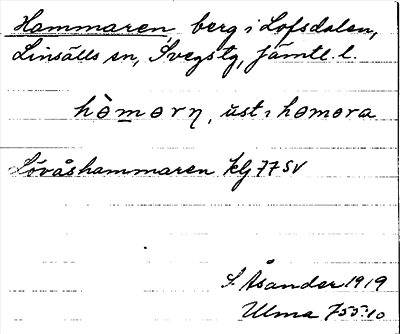 Hammaren, berg i Lofsdalen,
Linsälls sn, Svegs tg, Jämtl. l.
hòmərn, ust i homəra
Lövåshammaren klj 77 SV
S. Åsander 1919
Ulma 755:10